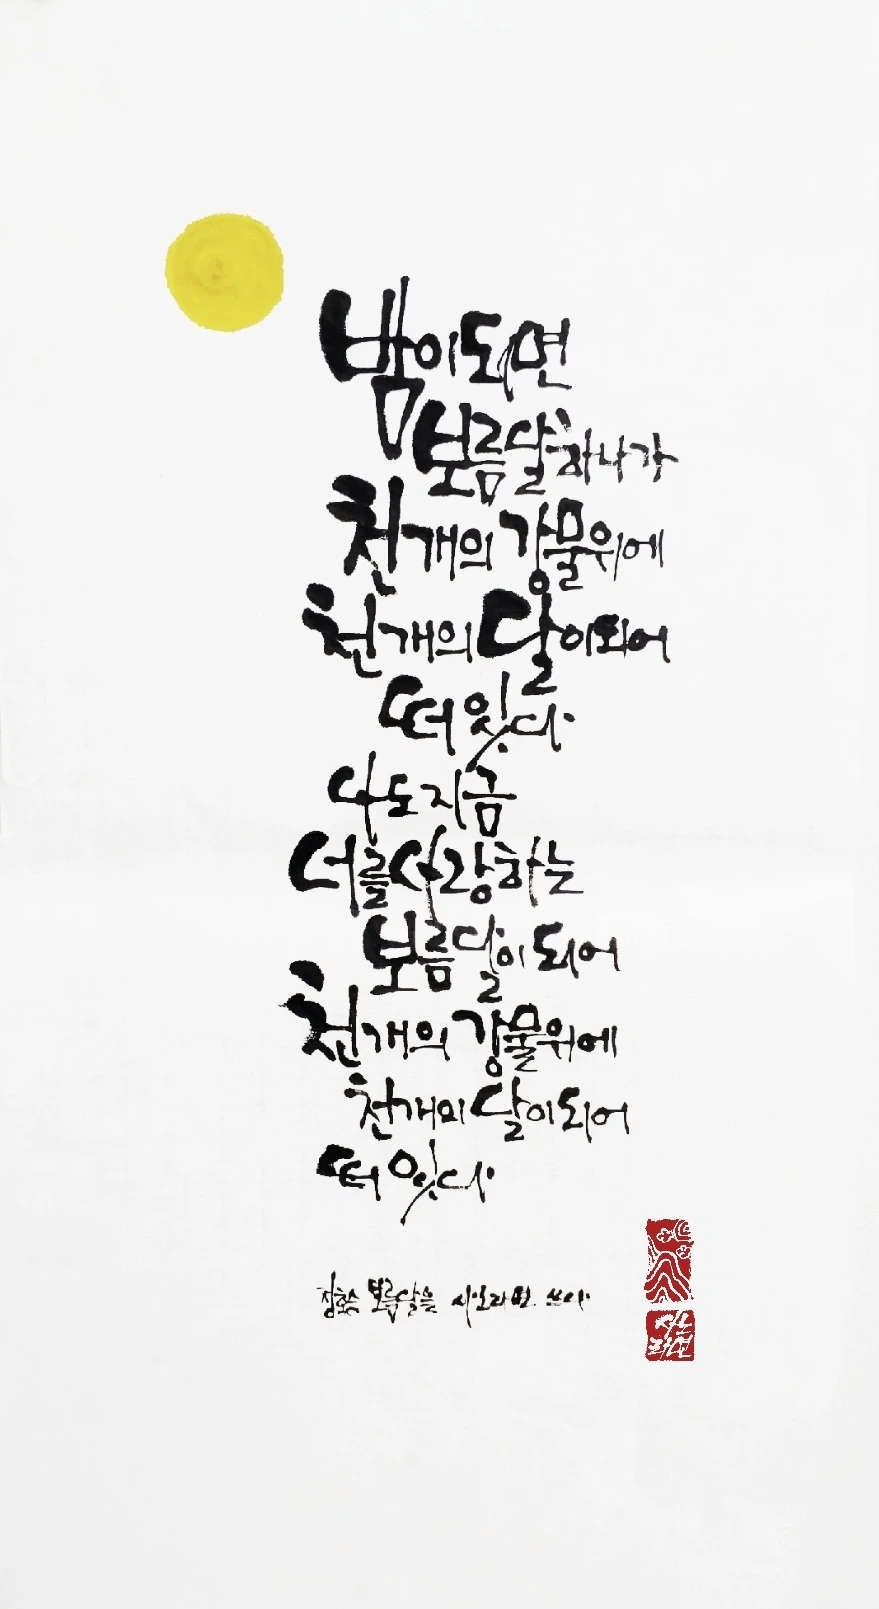 밤이되면
보름달하나가
천개의 강물위에
천개의 달이되어
떠 있다
나도지금
너를사랑하는
보름달이 되어
천개의 강물위에
천개의 달이되어
떠 있다
보름달을 쓰다